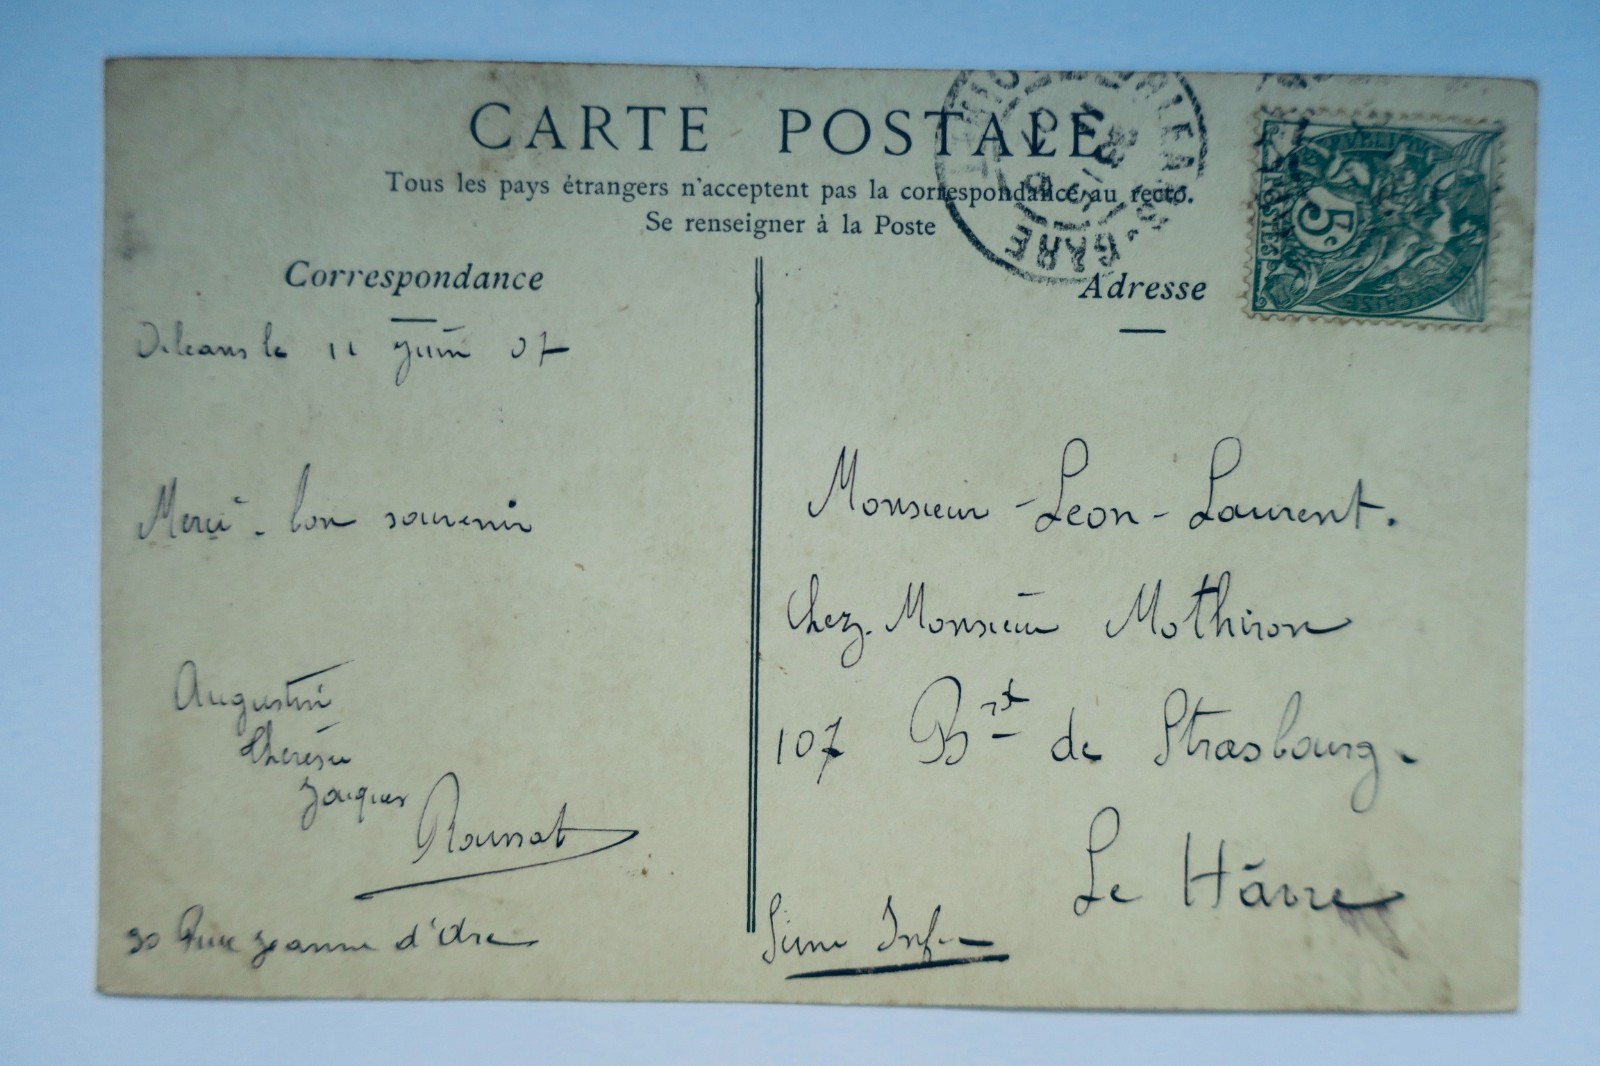 CARTE POSTALE
Tous les pays étrangers n'acceptent pas la correspondance au recto.
Se renseigner à la Poste
Correspondance
Orleans le 11 juin 07
Merci - bon souvenir
Augustin
Therese
Jacques
Roussat
30 Rue Jeanne d'Arc
Adresse
Monsieur - Leon - Laurent.
Chez Monsieur Mothiron
107 Brt de Strasbourg.
Le Hâvre
Seine Infre
GARE
POSTES
5c